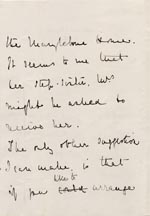 the Marylebone Home.
It seems to me that
her step-sister, Mrs
might be asked to
receive her.
The only other suggestion
I can make, is that
if you like to could arrange